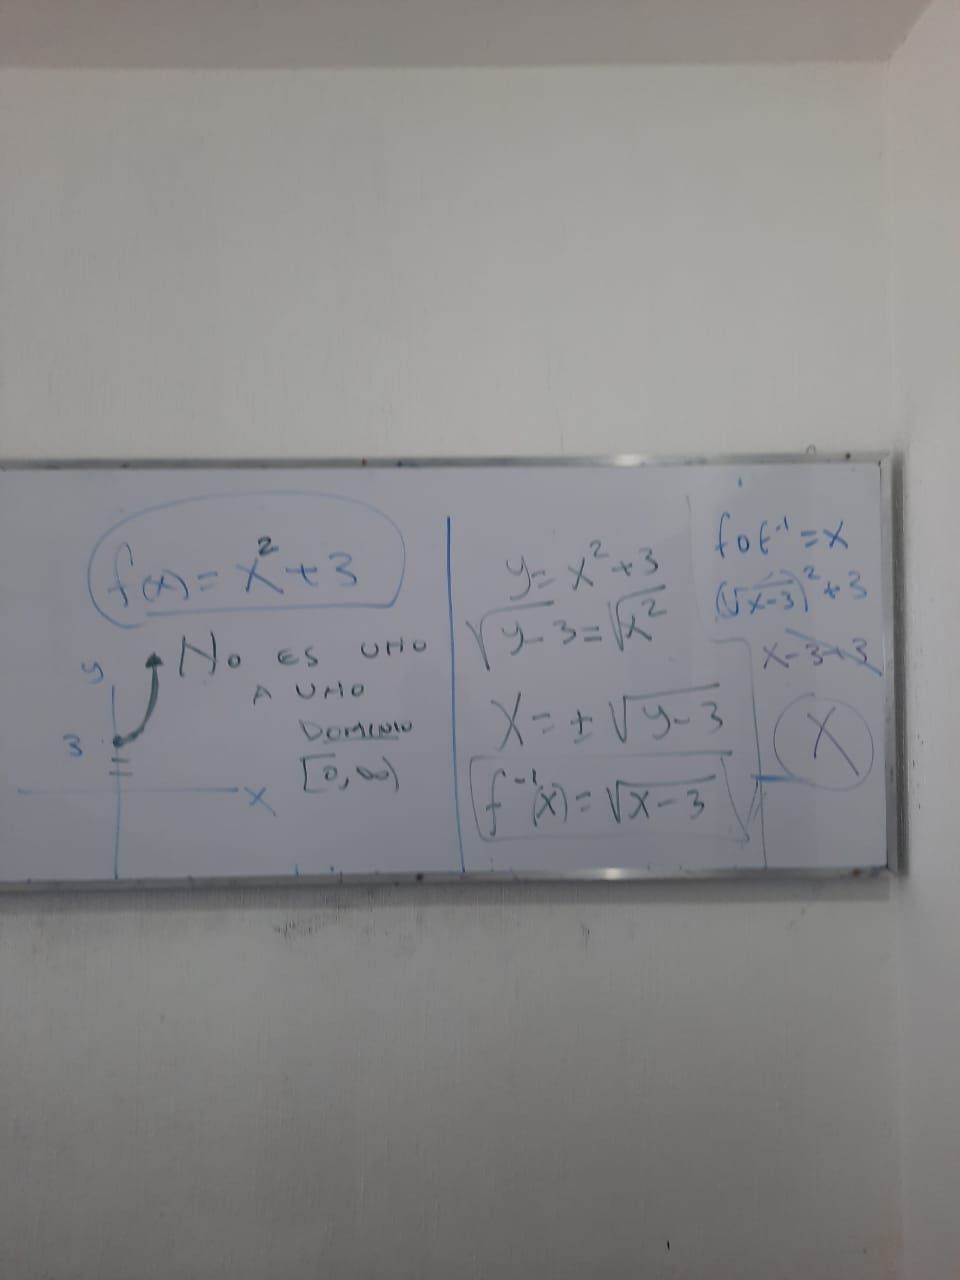 f(x) = x² + 3
No ES UNO
A UNO
DOMINIO
[0, ∞)
y
3
x
y = x² + 3
√y - 3 = √x²
x = ± √y - 3
f⁻¹(x) = √x - 3
f o f⁻¹ = x
(√x - 3)² + 3
x - 3 + 3
x